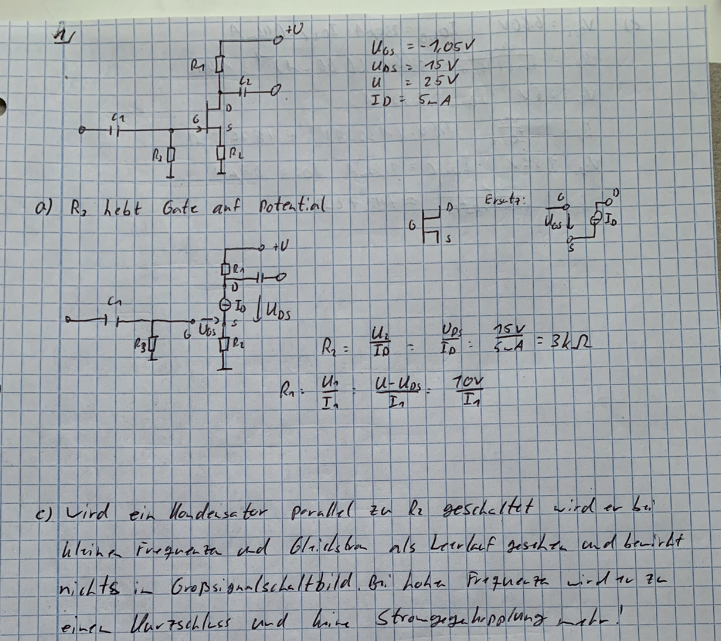 h)
+U
R1
C2
D
C1
G
S
R3
R2
UGS = -1,05V
UDS = 15V
U = 25V
ID = 5mA
a) R3 hebt Gate auf Potential
G
D
S
Ersatz:
G
D
UGS
ID
S
+U
R1
D
C1
ID
UDS
G
UGS
S
R3
R2
R2 = U2/ID = UDS/ID = 15V/5mA = 3kΩ
R1 = U1/I1 = U-UDS/I1 = 10V/I1
c) Wird ein Kondensator parallel zu R2 geschaltet wird er bei
kleinen Frequenzen und Gleichstrom als Leerlauf gesehen und bewirkt
nichts im Großsignalschaltbild. Bei hohen Frequenzen wird er zu
einen Kurzschluss und keine Stromgegenkopplung mehr!